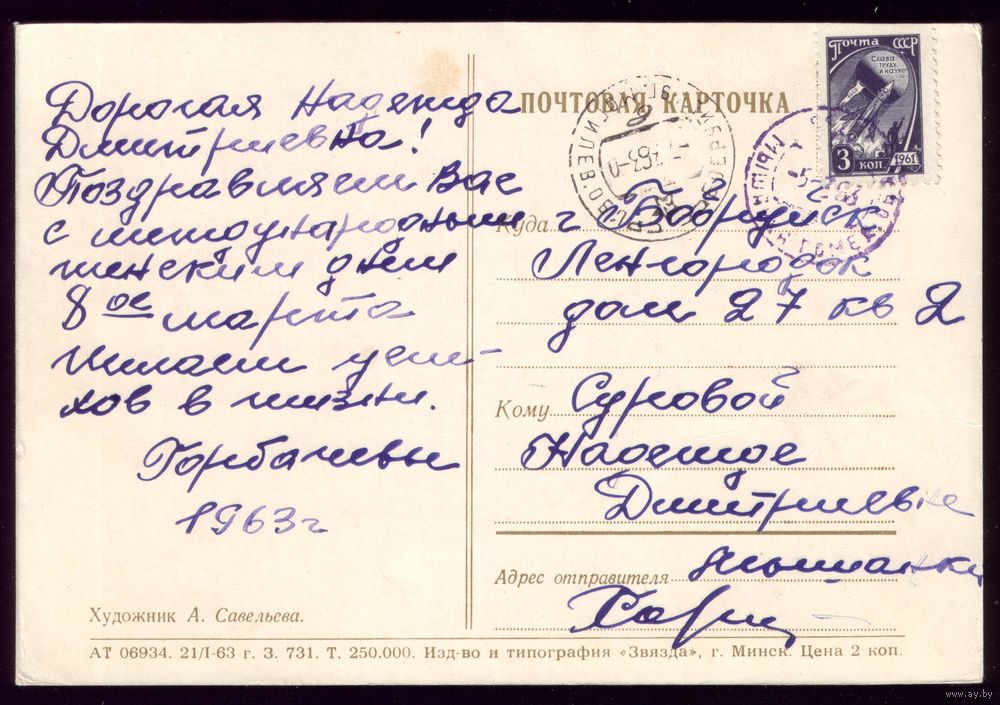 Дорогая Надежда
Дмитриевна!
Поздравляем Вас
с международным
женским днем
8ое марта
желаем успе-
хов в жизни.
Горбачевы
1963г
Художник А. Савельева.
ПОЧТОВАЯ КАРТОЧКА
Почта СССР
Слава
труду
и науке
3 коп
1961
Куда г. Бобруйск
Ленгородок
дом 27 кв 2
Кому Суровой
Надежде
Дмитриевне
Адрес отправителя
АТ 06934. 21/I-63 г. З. 731. Т. 250.000. Изд-во и типография «Звязда», г. Минск. Цена 2 коп.
www.ay.by